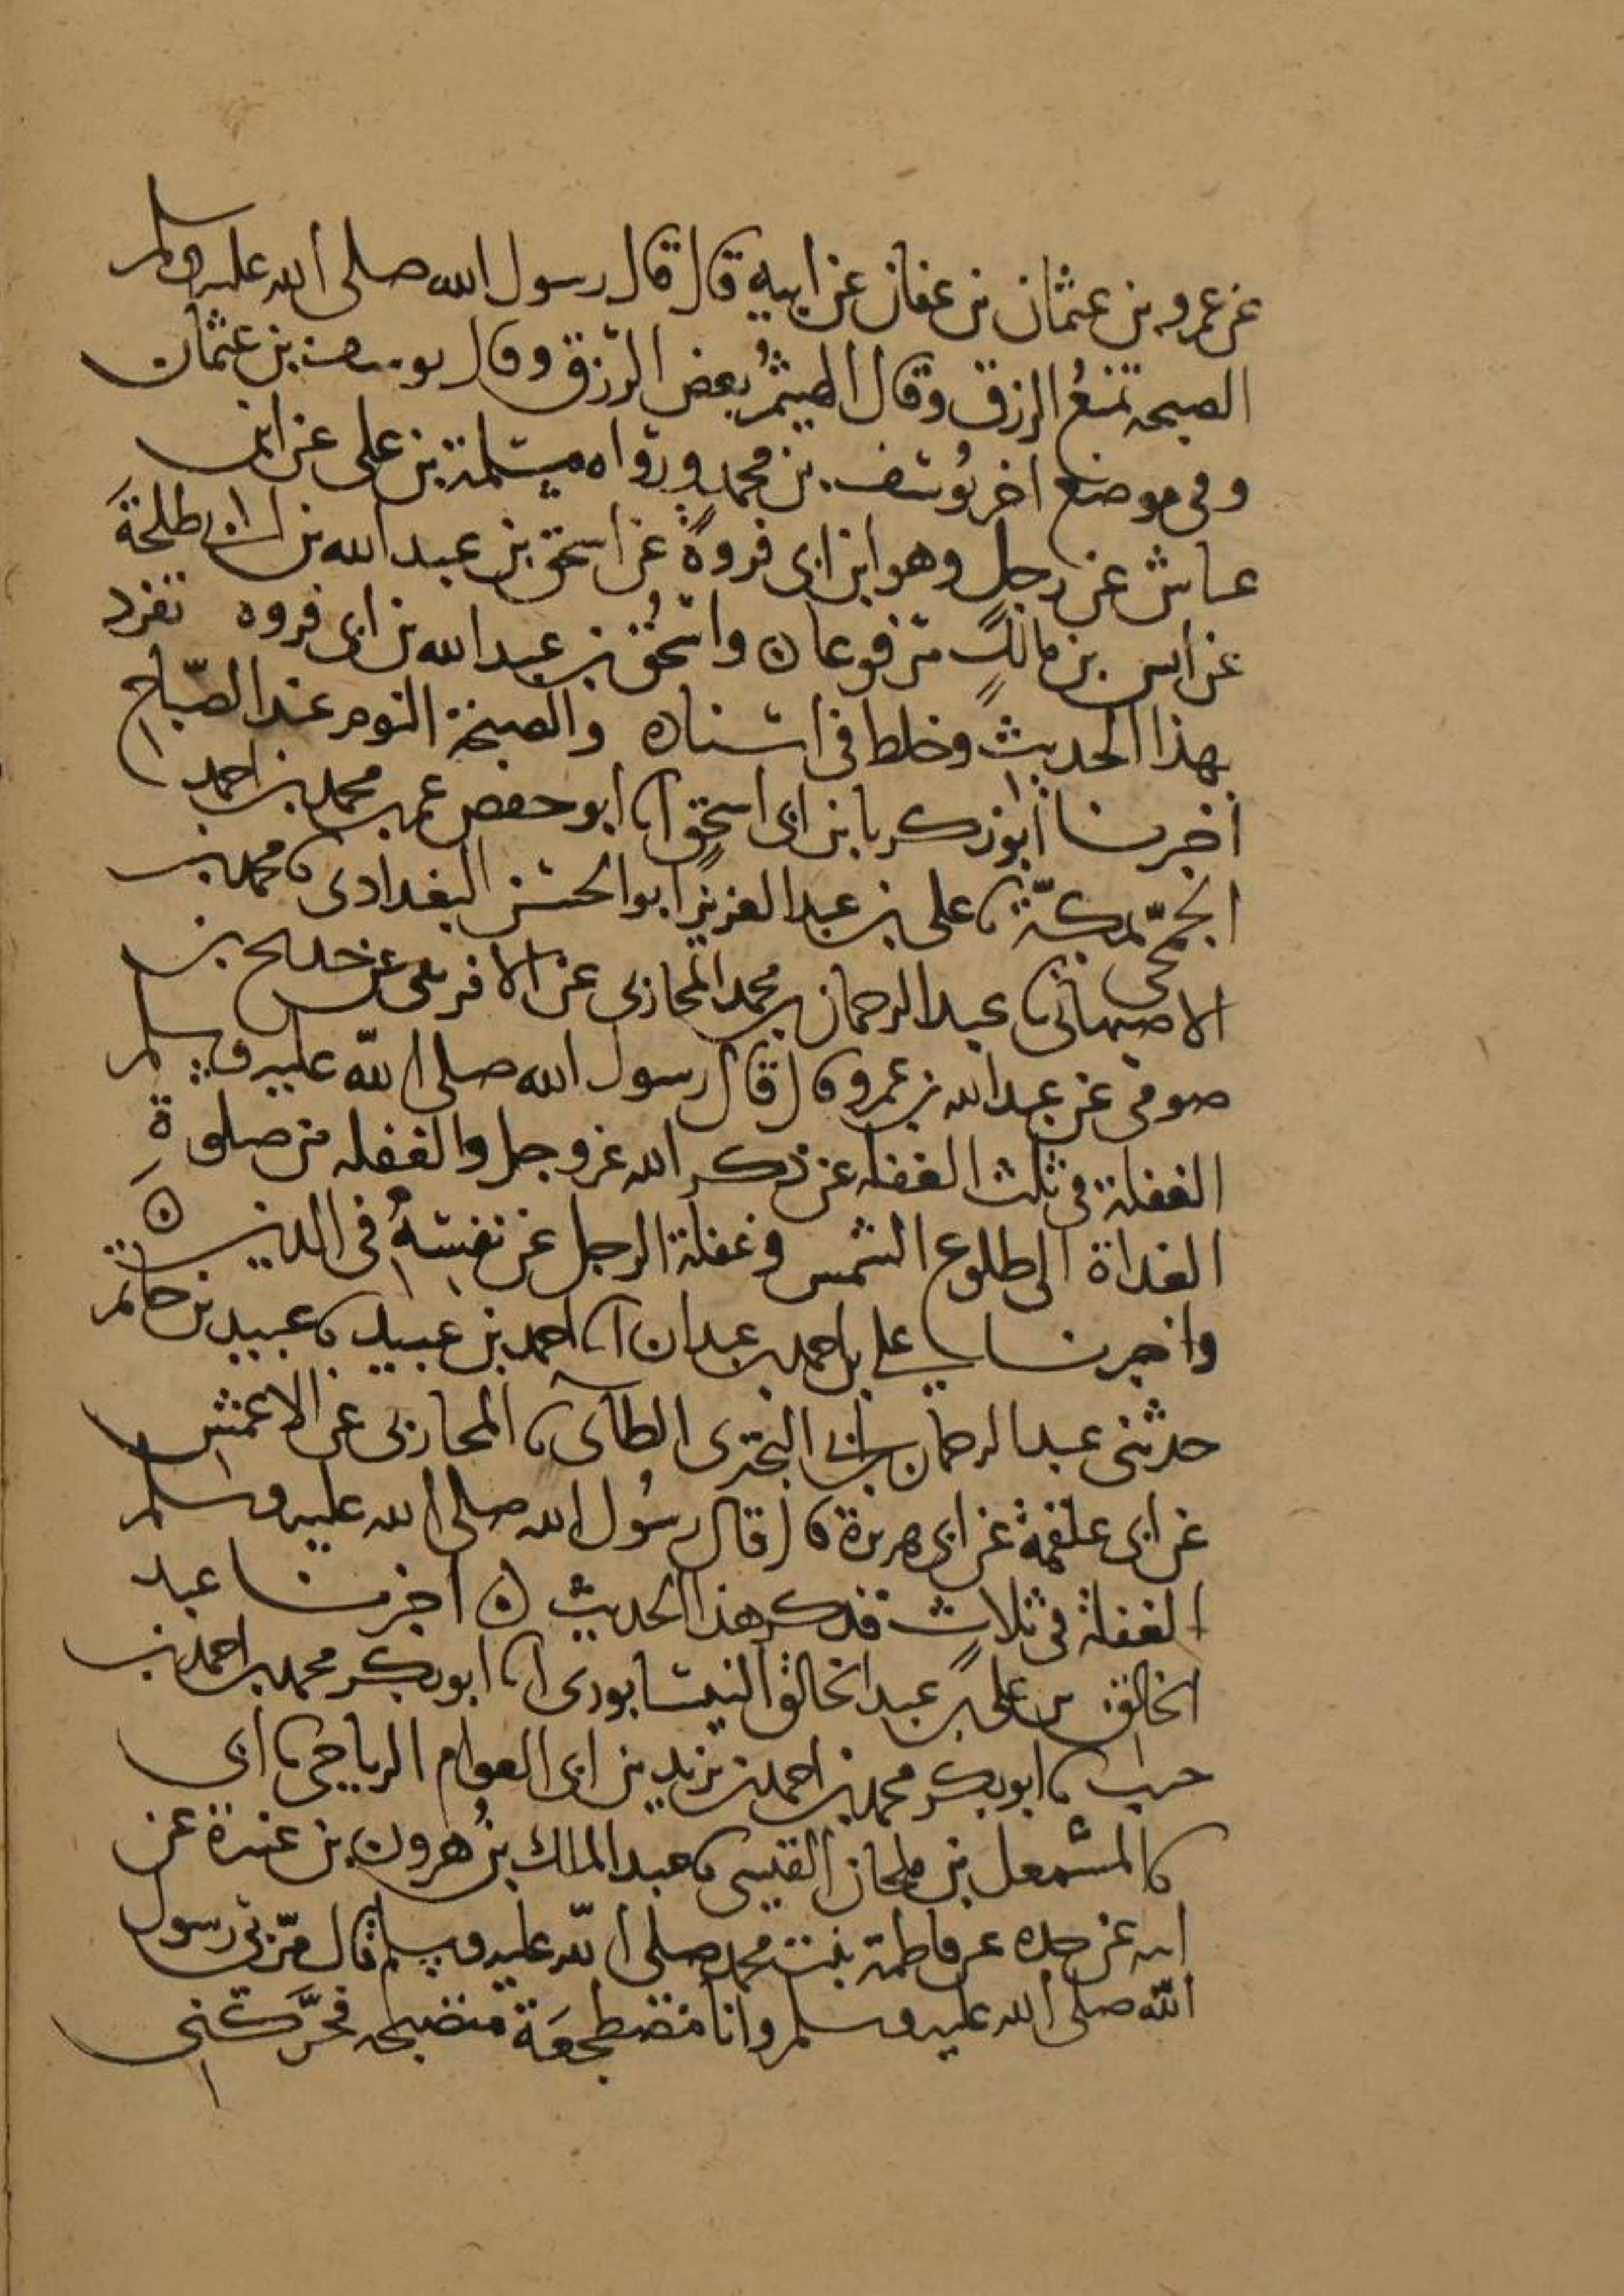 عن عمرو بن عثمان بن عفان عن ابيه قال قال رسول الله صلى الله عليه وسلم
الصبحه تمنعُ الرزق وقال الهيثمُ بعض الرزق وقال يوسف بن عثمان
وفى موضع اخر يُوسف بن محمدٍ ورواه مسلمة بن على عن ابن
عياش عن رجل وهو ابن ابى فروةَ عن اسحق بن عبد الله بن ابى طلحةَ
عن انس بن مالكٍ مرفوعا ه واسحٰق بن عبد الله بن ابى فروه تفرد
بهذا الحديث وخلط فى اسناده والصبحة النوم عند الصّباح
اخبرنا ابو زكريا بن ابى اسحٰق انا ابو حفص عمر بن محمد بن احمد
الجمحى بمكّة نا على بن عبد العزيز ابو الحسن البغدادى نا محمد بن
الاصبهانى نا عبد الرحمان بن محمد المحاربى عن الافريقى عن حديج بن
صومى عن عبد الله بن عمرو قال قال رسول الله صلى الله عليه وسلم
الغفلة فى ثلث الغفله عن ذكر الله عز وجل والغفله من صلوةِ
الغداة الى طلوع الشمس وغفلة الرجل عن نفسهُ فى الدين ه
واخبرنا على بن احمد بن عبدان انا احمد بن عبيد نا عبيد بن حاتم
حدثنى عبد الرحمان بن ابى البخترى الطآى نا المحاربى عن الاعمش
عن ابى علقمة عن ابى هريرة قال قال رسُول الله صلى الله عليه وسلم
الغفلة فى ثلاثٍ فذكر هذا الحديث ه اخبرنا عبد
الخالق بن على بن عبد الخالق النيسابورى انا ابو بكر محمد بن احمد بن
حنب نا ابو بكر محمد بن احمد بن يزيد بن ابى العوام الرياحى نا ابى
نا المشمعل بن ملحان القيسى نا عبد الملك بن هٰرون بن عنترة عن
ابيه عن جده عن فاطمة بنت محمد صلى الله عليه وسلم قال مرّ بى رسول
الله صلى الله عليه وسلم وانا مضطجعَة متصبحه فحرَّكنى